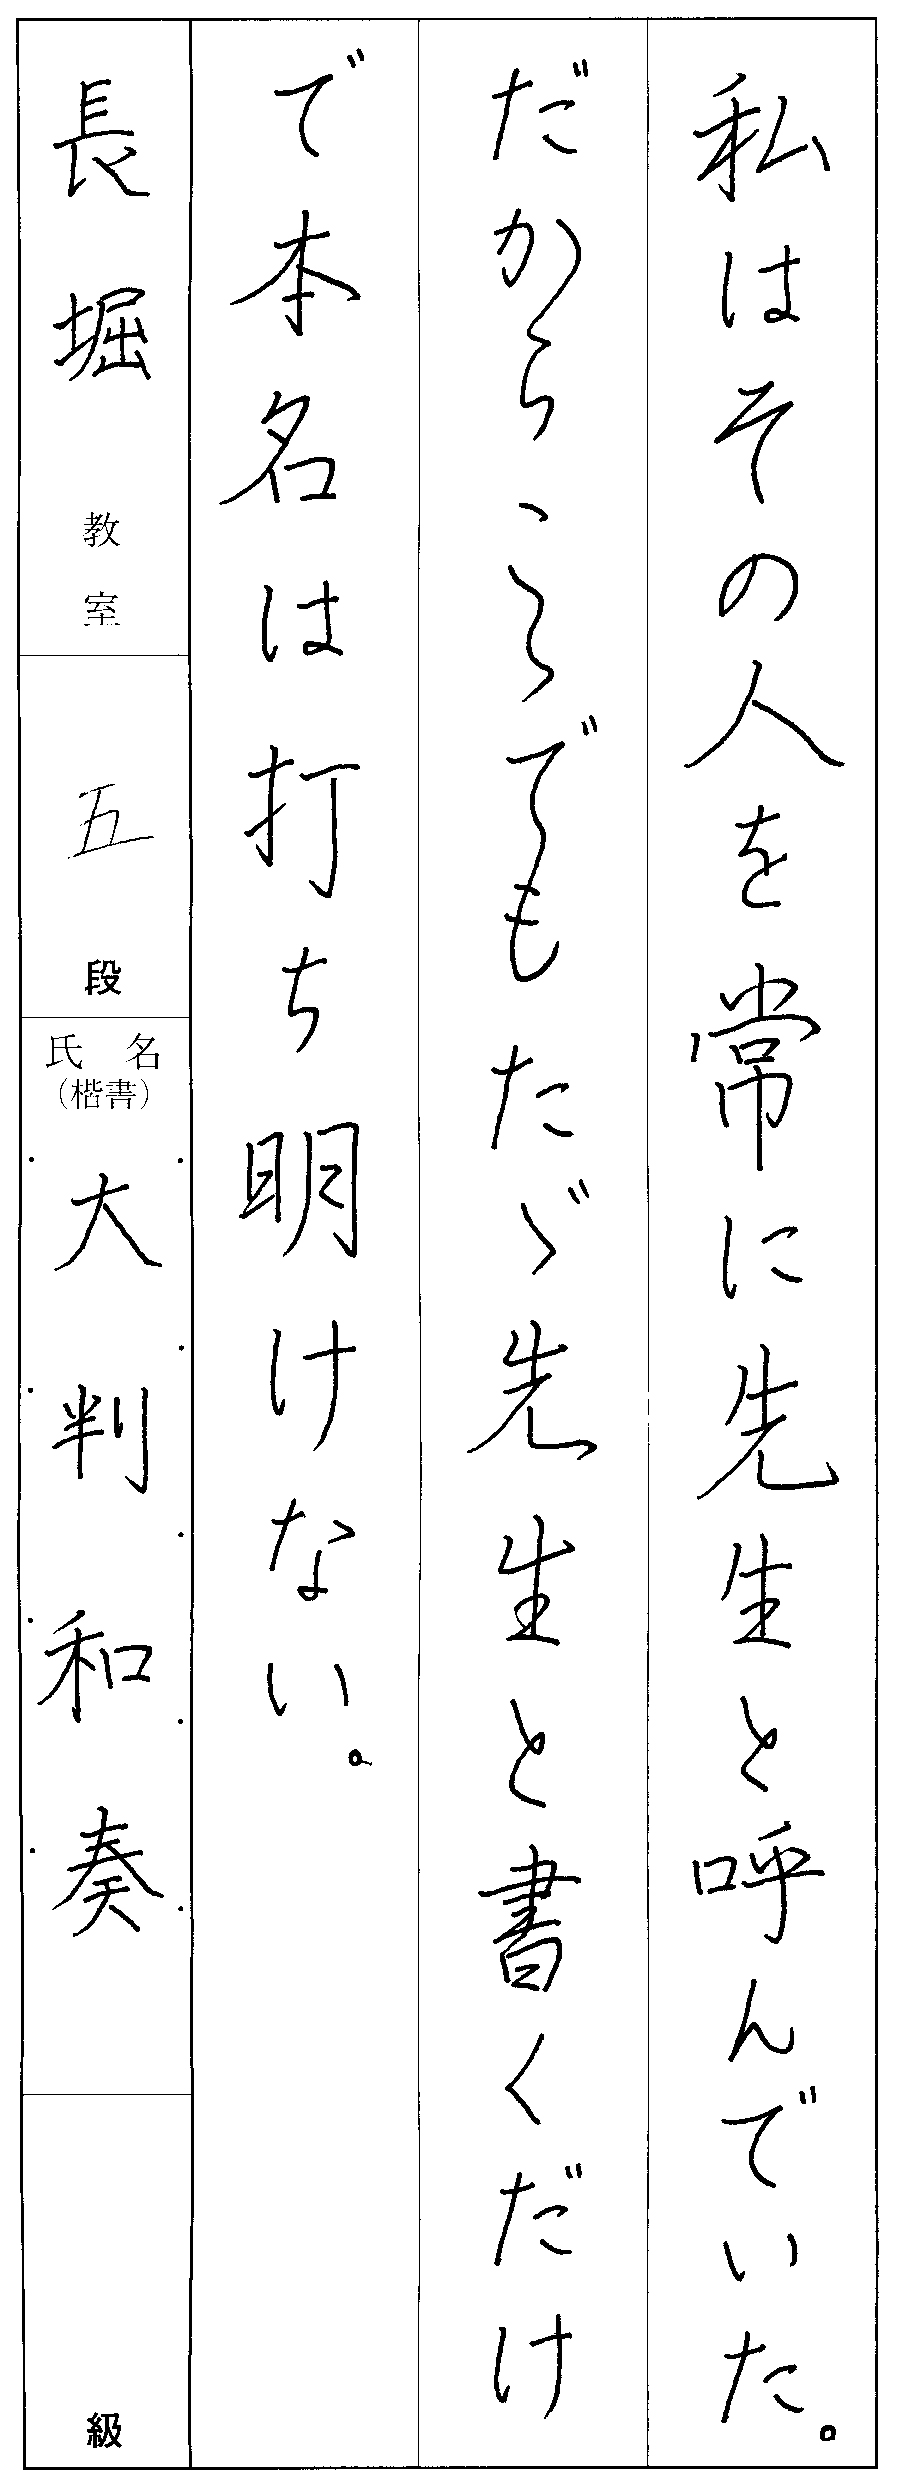 私はその人を常に先生と呼んでいた。
だからこゝでもたゞ先生と書くだけ
で本名は打ち明けない。
長堀教室
五段
氏名
(楷書)
大判和奏
級